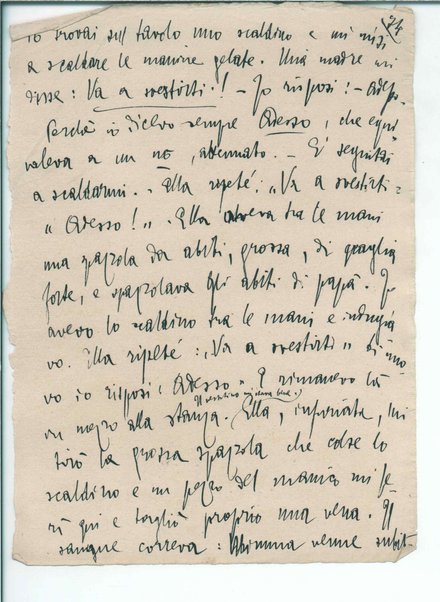 24
io trovai sul tavolo uno scaldino e mi misi
a scaldare le manine gelate. Mia madre mi
disse: Va a vestirti! – Io risposi: – Adesso.
Perchè io dicevo sempre Adesso, che equi
valeva a un no, attenuato. – E seguitai
a scaldarmi. – Ella ripeté: "Va a vestirti –
"Adesso!" Ella aveva tra le mani
una spazzola da abiti, grossa, di
forte, e spazzolava gli abiti di papà. Io
avevo lo scaldino tra le mani e indugia
vo. Ella ripeté: "Va a vestirti" di nuo
vo io risposi "Adesso". E rimanevo là
in mezzo alla stanza. Ella, infuriata, mi
tirò la grossa spazzola che colse lo
scaldino e un pezzo del manico mi fe
rì qui e tagliò proprio una vena. Il
sangue correva: Mamma venne subit-